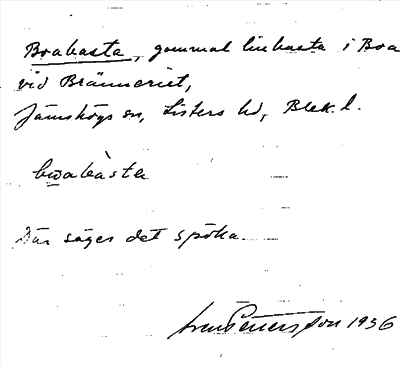 Boabasta, gammal linbasta i Boa
vid Bränneriet,
Jämshögs sn, Listers hd, Blek. l.
bωabàsta
Där säges det spöka.
Sven Petersson 1936